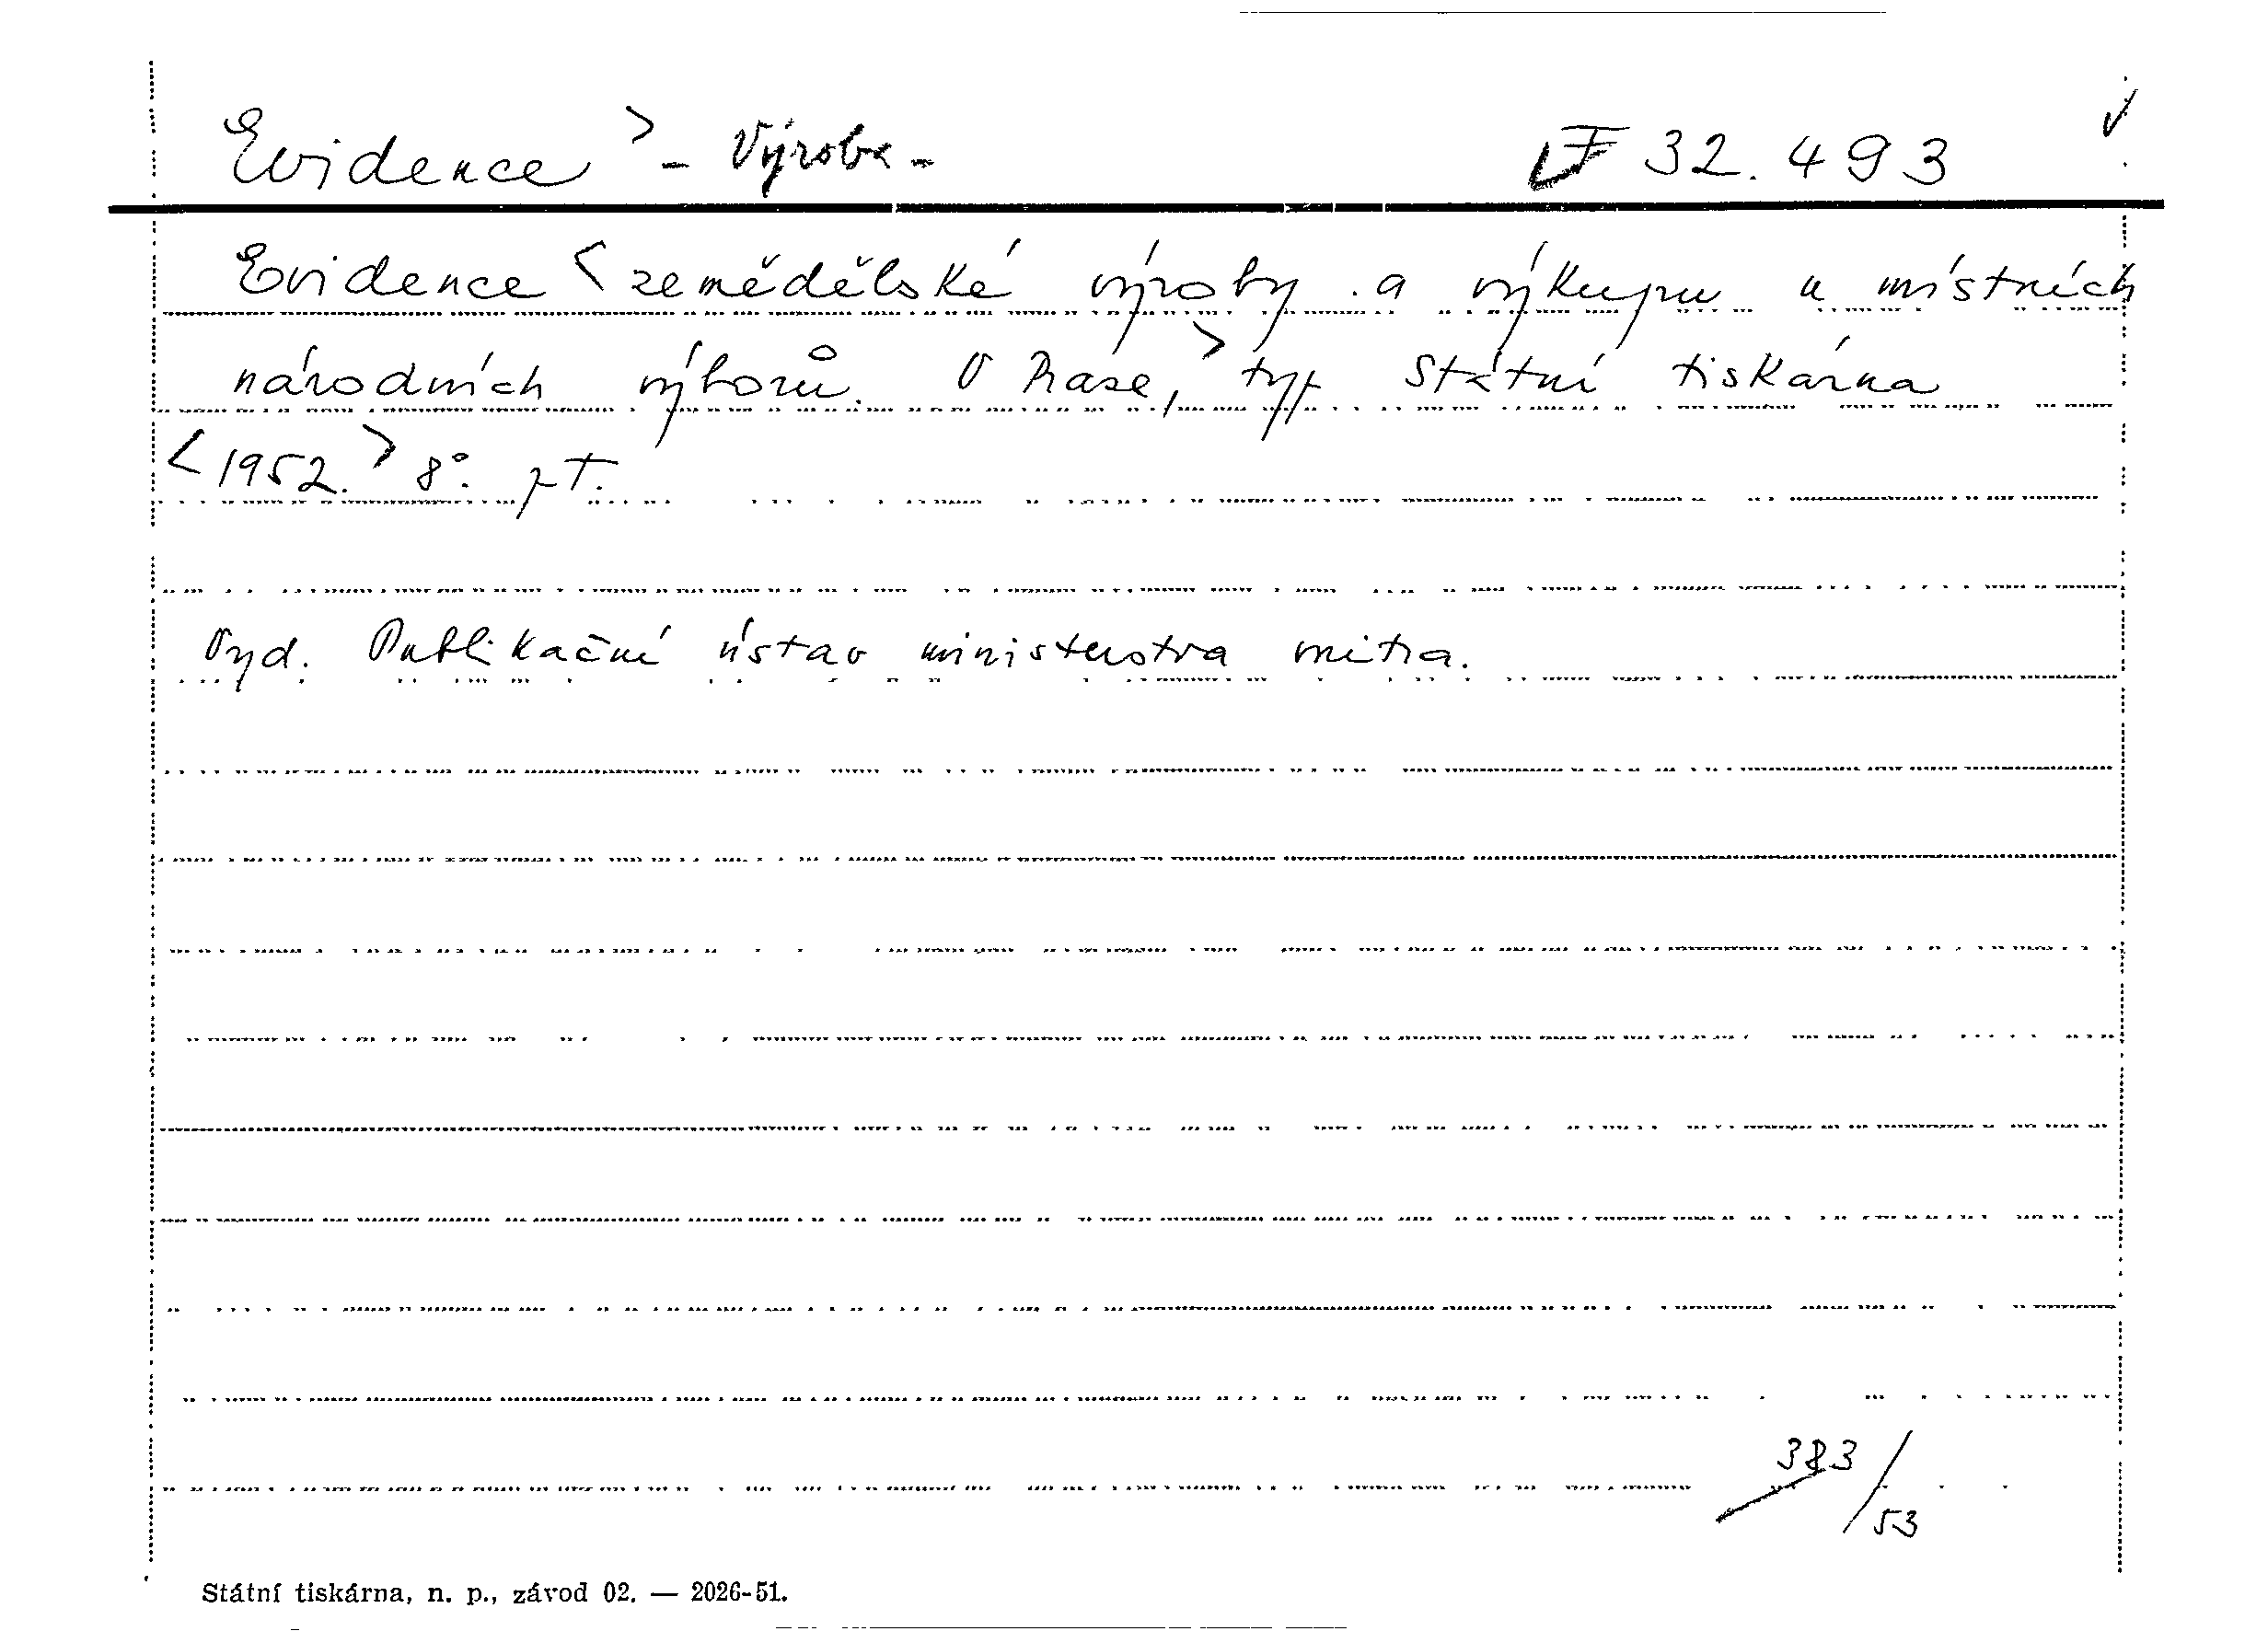 Evidence > - Výroba - F 32.493
Evidence < zemědělské výroby a výkupu u místních
národních výborů. V Praze, > typ Státní tiskárna
< 1952. > 8°. pT.
Vyd. Publikační ústav ministerstva vnitra.
383/53
Státní tiskárna, n. p., závod 02. — 2026-51.